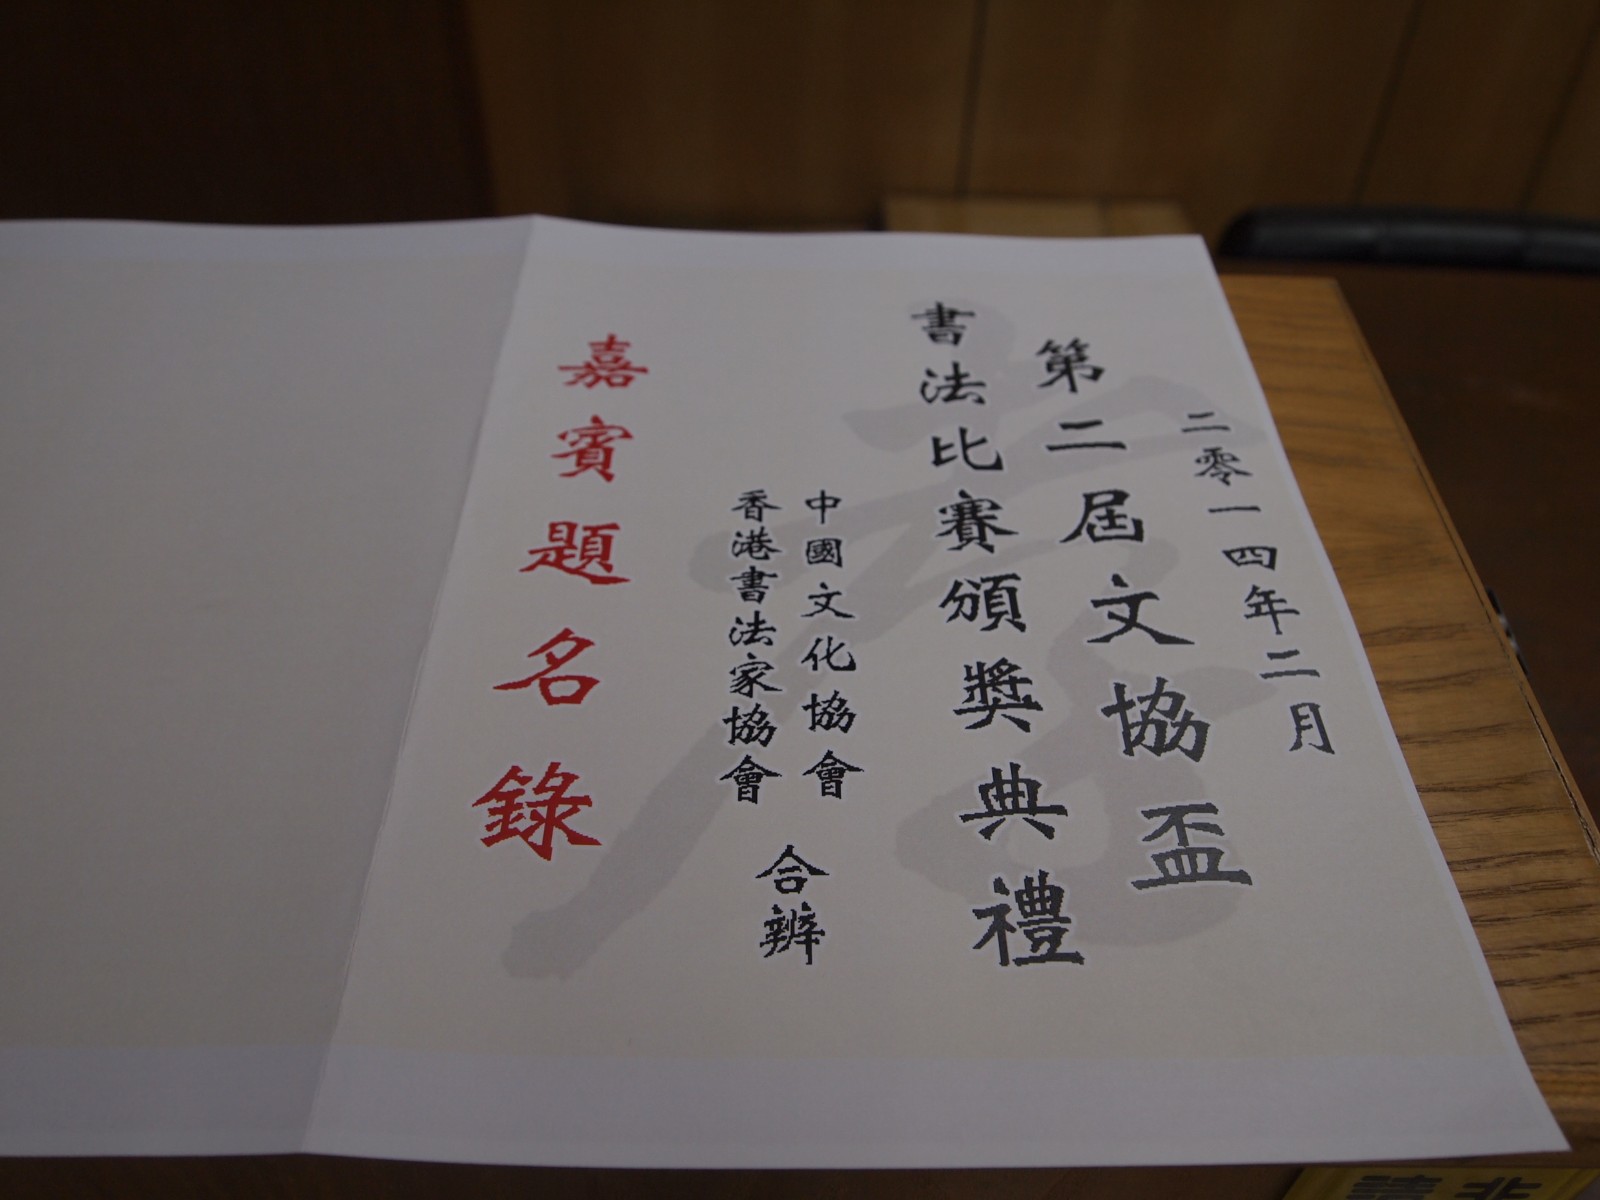 二零一四年二月
第二屆文協盃
書法比賽頒獎典禮
中國文化協會
香港書法家協會
合辦
嘉賓題名錄